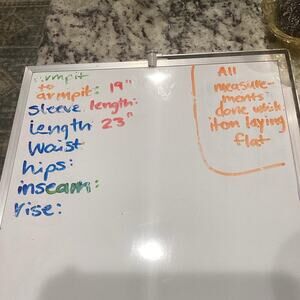 armpit
to
armpit: 19"
Sleeve length:
length: 23"
Waist
hips:
inseam:
rise:
All
measure-
ments
done while
item laying
flat